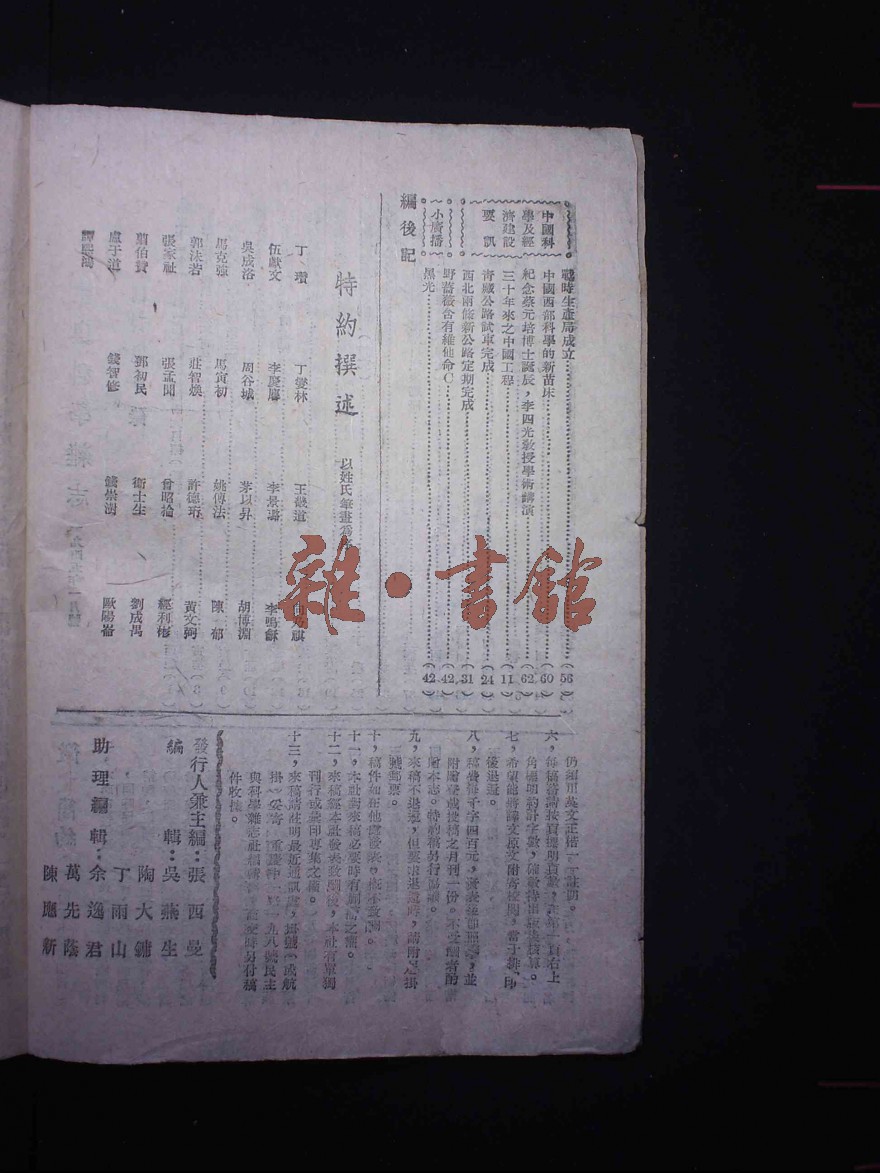 中國科學及經濟建設要訊
戰時生產局成立(56)
中國西部科學的新苗床(60)
紀念蔡元培博士誕辰,李四光教授學術講演(62)
三十年來之中國工程(11)
青藏公路試車完成(24)
西北兩條新公路定期完成(31)
野薔薇含有維他命C(42)
小廣播
黑光(42)
編後記
特約撰述
以姓氏筆畫為
丁瓚 丁燮林
伍獻文 李慶賡 李景潞 李鳴龢
吳成洛 周谷城 茅以昇 胡博淵
馬克強 馬寅初 姚傳法 陳郁
郭沫若 莊智煥 許德珩 黃文弼
張家祉 張孟聞 曾昭掄 經利彬
翦伯贊 鄧初民 衛士生 劉成禺
盧于道 錢智修 錢崇澍 歐陽崙
譚熙鴻
雜·書館
仍須用英文正楷一一註明。
七,希望能將譯文原文附寄校閱,當于排印
後退還。
八,稿費每千字四百元,發表後即照奉,並
附贈登載從稿之月刊一份。不受酬者酌贈
本志。特約稿另行協議。
九,來稿不退還,但要求退還時,請附足掛
號郵票。
十,稿件如在他處發表,概不致酬。
十一,本社對來稿必要時有刪改之權。
十二,來稿經本社發表致酬後,本社有單獨
刊行或彙印專集之權。
十三,來稿請註明最近通訊處,掛號(或航
掛)妥寄:重慶
件收據。
發行人兼主編:張西曼
編輯:吳燕生
陶大鏞
丁雨山
助理編輯:余逸君
萬先蔭
陳應新